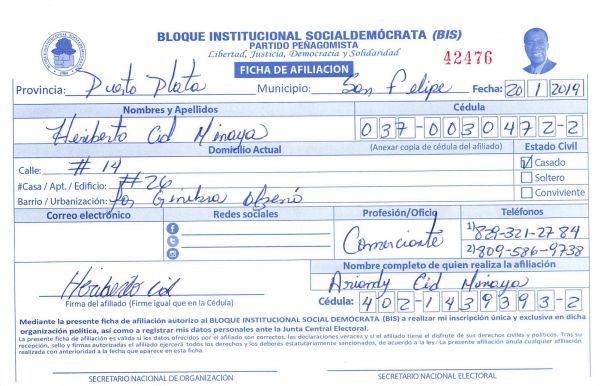 BLOQUE INSTITUCIONAL SOCIALDEMÓCRATA (BIS)
PARTIDO PEÑAGOMISTA
Libertad, Justicia, Democracia y Solidaridad
42476
FICHA DE AFILIACION
Provincia: Puerto Plata Municipio: San Felipe Fecha: 20 1 2019
Nombres y Apellidos Cédula
Heriberto Cid Minaya 037-0030472-2
Domicilio Actual (Anexar copia de cédula del afiliado) Estado Civil
Calle: #14 Casado
#Casa / Apt. / Edificio: #26 Soltero
Barrio / Urbanización: Los Ginebra Conviviente
Correo electrónico Redes sociales Profesión/Oficio Teléfonos
Comerciante 1) 829-321-2784
2) 809-586-9738
Nombre completo de quien realiza la afiliación
Heriberto Cid Ariondy Cid Minaya
Firma del afiliado (Firme igual que en la Cédula) Cédula: 402-1439393-2
Mediante la presente ficha de afiliación autorizo al BLOQUE INSTITUCIONAL SOCIAL DEMÓCRATA (BIS) a realizar mi inscripción única y exclusiva en dicha
organización política, así como a registrar mis datos personales ante la Junta Central Electoral.
La presente ficha de afiliación es válida si los datos ofrecidos por el afiliado son correctos, las declaraciones veraces y si el afiliado tiene el disfrute de sus derechos civiles y políticos. Tras su
recepción, sello y firmas autorizadas el afiliado ejercerá todos los derechos y los deberes estatutariamente sancionados, de acuerdo a la ley. La presente afiliación anula cualquier afiliación
realizada con anterioridad a la fecha que aparece en esta ficha.
SECRETARIO NACIONAL DE ORGANIZACIÓN SECRETARIO NACIONAL ELECTORAL